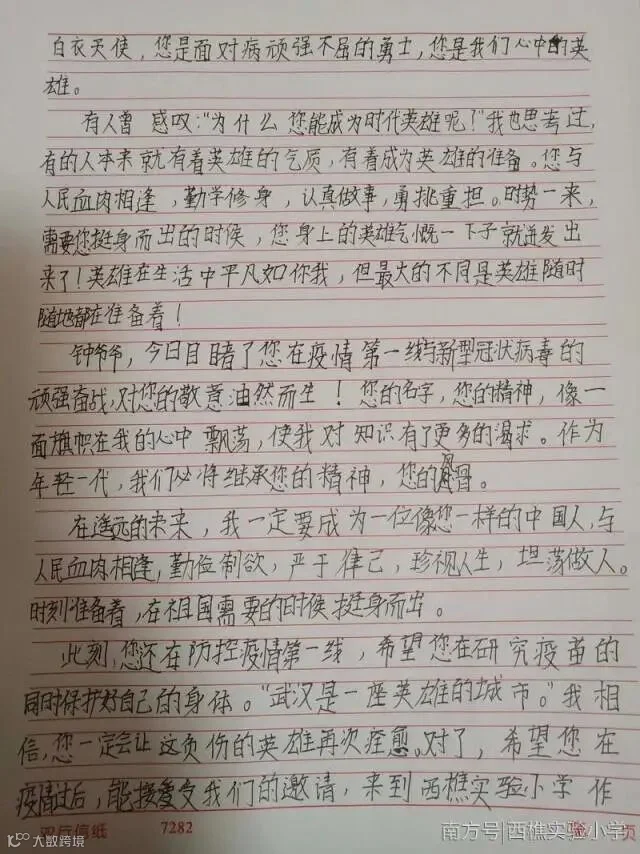 白衣天使，您是面对病顽强不屈的勇士，您是我们心中的英
雄。
有人曾感叹："为什么您能成为时代英雄呢？"我也思考过，
有的人本来就有着英雄的气质，有着成为英雄的准备。您与
人民血肉相逢，勤学修身，认真做事，勇挑重担。时势一来，
需要您挺身而出的时候，您身上的英雄气慨一下子就迸发出
来了！英雄在生活中平凡如你我，但最大的不同是英雄随时
随地都在准备着！
钟爷爷，今日目睹了您在疫情第一线与新型冠状病毒的
顽强奋战，对您的敬意油然而生！您的名字，您的精神，像一
面旗帜在我的心中飘荡，使我对知识有了更多的渴求。作为
年轻一代，我们必将继承您的精神，您的风骨。
在遥远的未来，我一定要成为一位像您一样的中国人，与
人民血肉相逢，勤俭制欲，严于律己，珍视人生，坦荡做人。
时刻准备着，在祖国需要的时候挺身而出。
此刻，您还在防控疫情第一线，希望您在研究疫苗的
同时保护好自己的身体。"武汉是一座英雄的城市。"我相
信，您一定会让这负伤的英雄再次痊愈。对了，希望您在
疫情过后，能接受我们的邀请，来到西樵实验小学作
双行信纸 7282 页
大数跨境
南方号|西樵实验小学